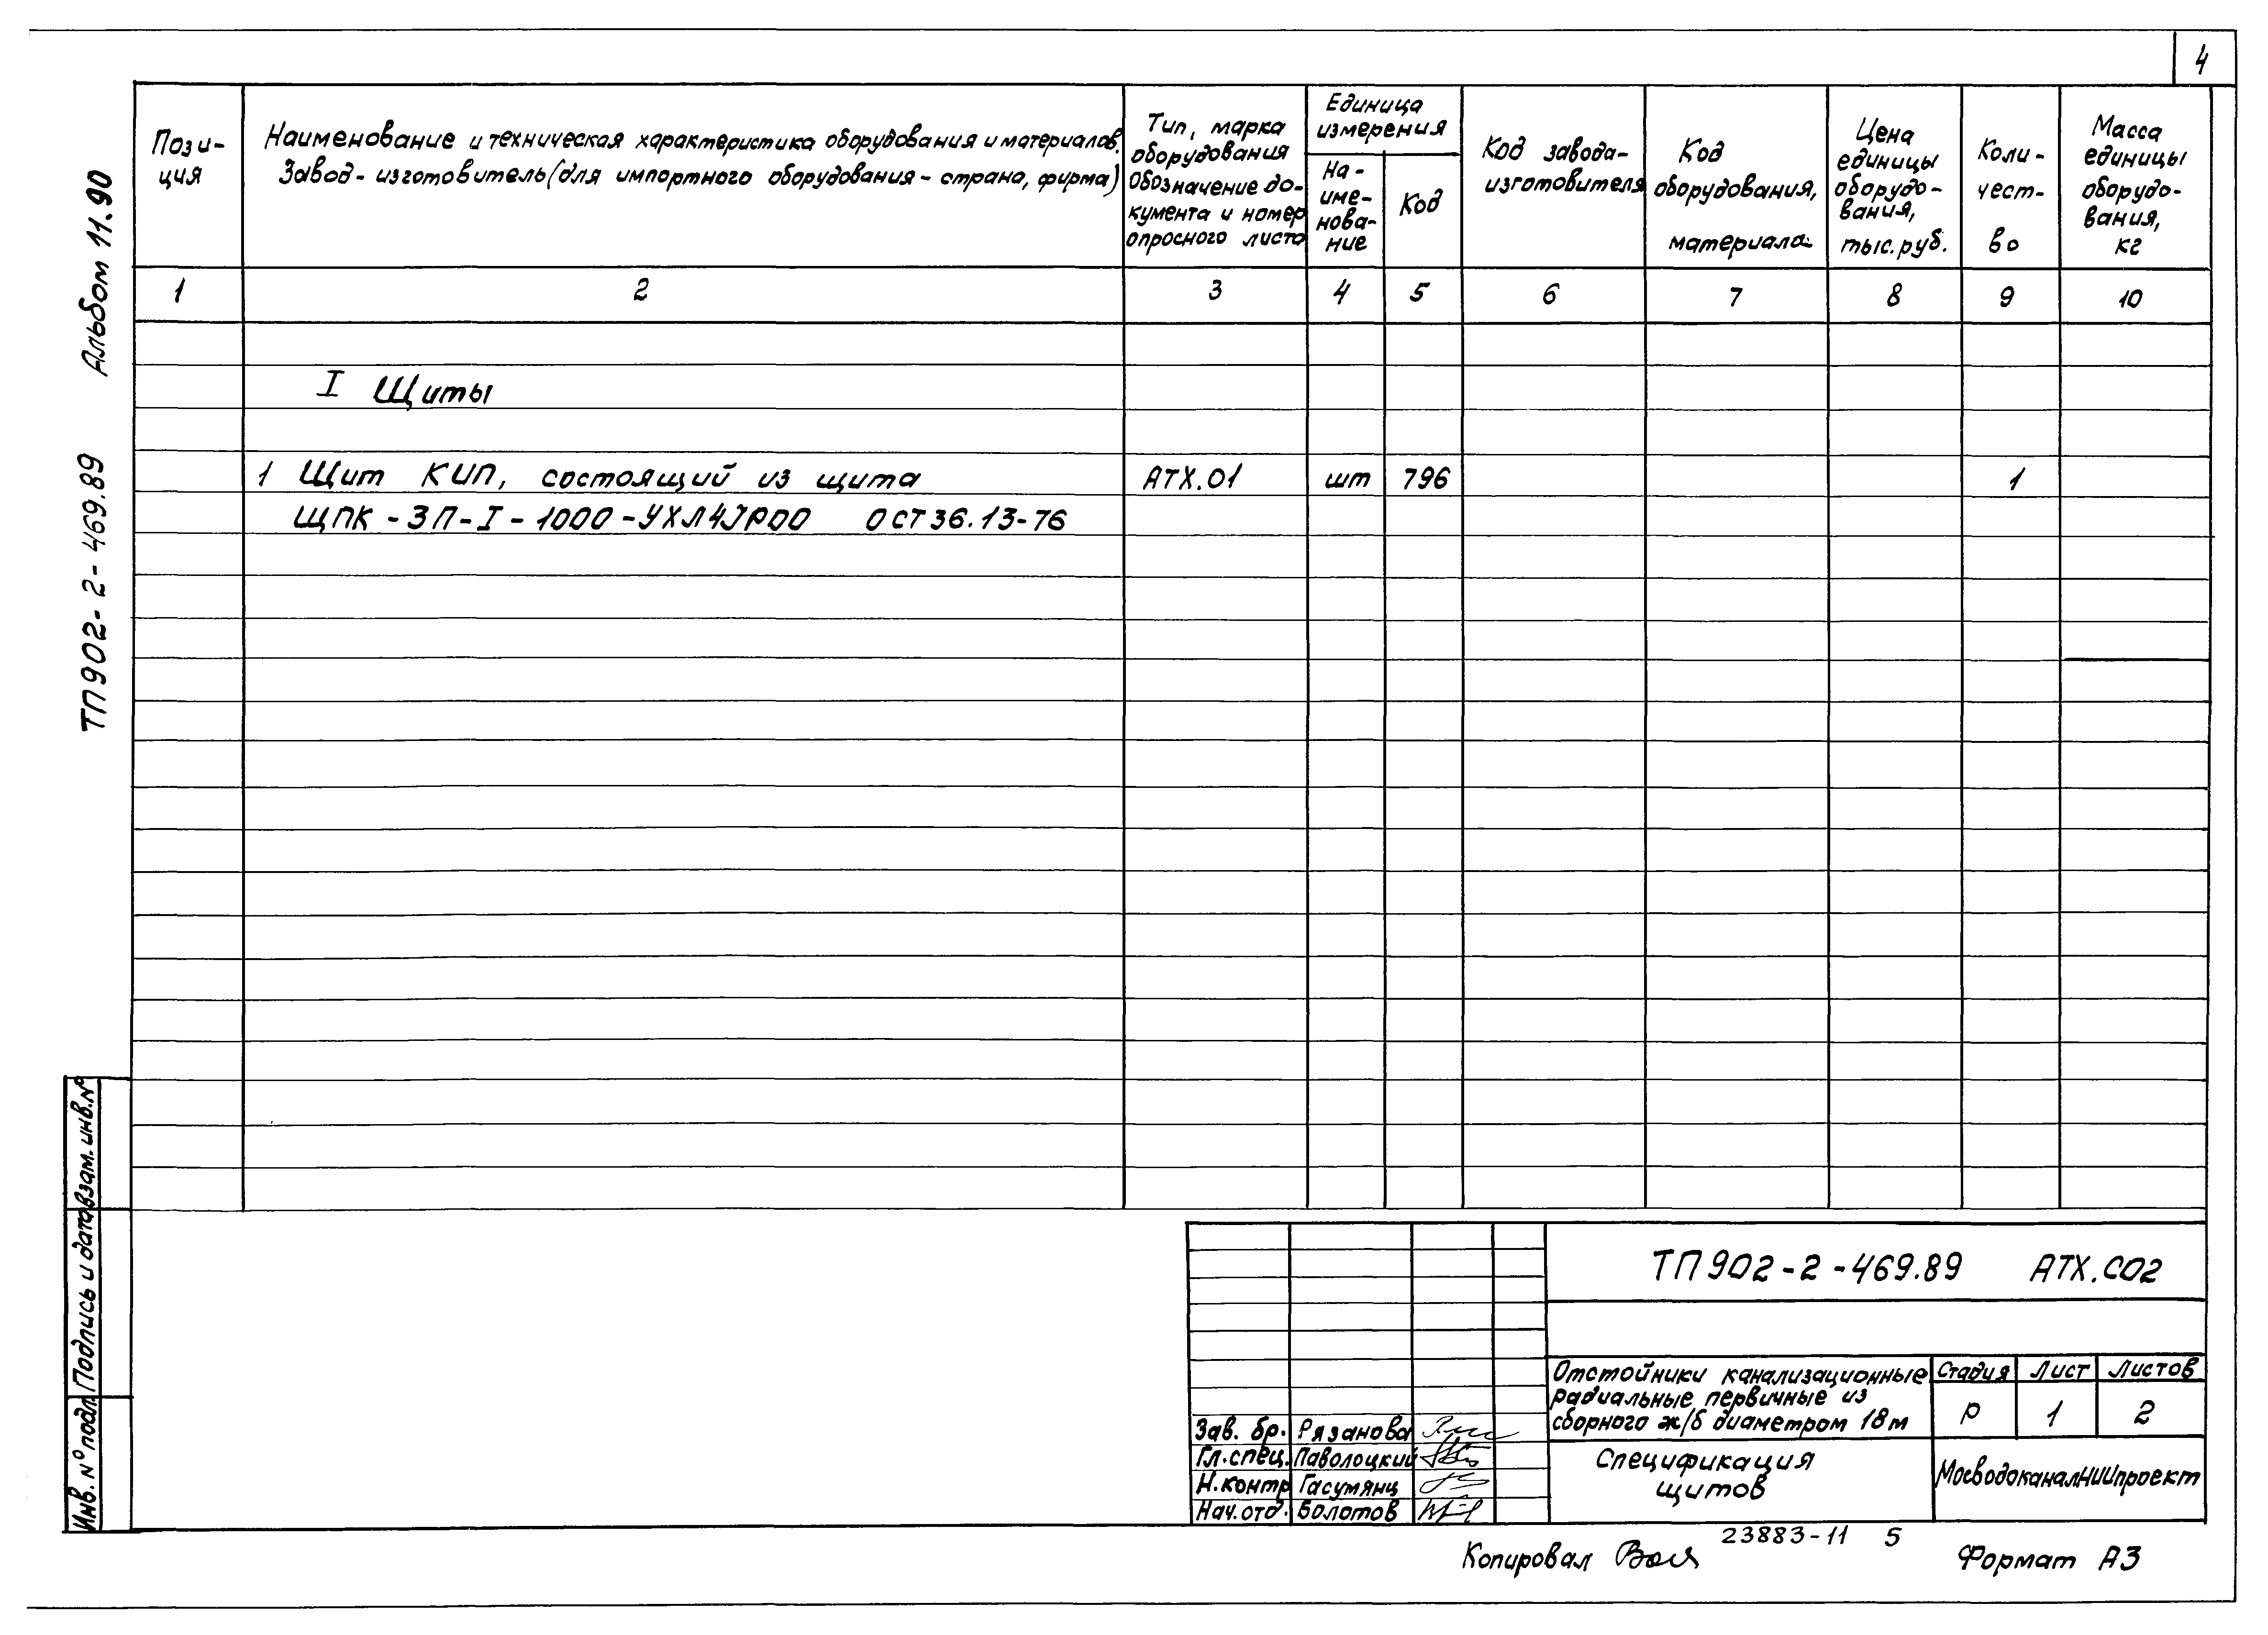 4
Альбом 11.90
ТП902-2-469.89
Пози-
ция
Наименование и техническая характеристика оборудования и материалов.
Завод-изготовитель (для импортного оборудования - страна, фирма)
Тип, марка
оборудования
обозначение до-
кумента и номер
опросного листа
Единица
измерения
На-
име-
нова-
ние
Код
Код завода-
изготовителя
Код
оборудования,
материала
Цена
единицы
оборудо-
вания,
тыс. руб.
Коли-
чест-
во
Масса
единицы
оборудо-
вания,
кг
1 2 3 4 5 6 7 8 9 10
I Щиты
1 Щит КИП, состоящий из щита АТХ.01 шт 796 1
ЩПК-ЗП-I-1000-УХЛ4JP00 ОСТ36.13-76
Взам. инв. N°
Подпись и дата
Инв. N° подл
ТП902-2-469.89 АТХ.С02
Отстойники канализационные
радиальные первичные из
сборного ж/б диаметром 18м
Стадия Лист Листов
Р 1 2
Зав. бр. Рязанова
Гл. спец. Паволоцкий
Н. контр Гасумянц
Нач. отд. Болотов
Спецификация
щитов
МосводоканалНИИпроект
23883-11 5
Копировал
Формат А3